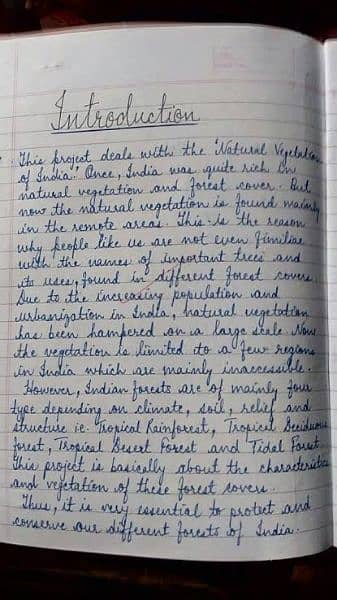 Introduction
This project deals with the 'Natural Vegetation
of India.' Once, India was quite rich in
natural vegetation and forest cover. But
now the natural vegetation is found mainly
in the remote areas. This is the reason
why people like us are not even fimiliar
with the names of important trees and
its uses, found in different forest covers.
Due to the increasing population and
urbanization in India, natural vegetation
has been hampered on a large scale. Now
the vegetation is limited to a few regions
in India which are mainly inaccessible.
However, Indian forests are of mainly four
type depending on climate, soil, relief and
structure ie. Tropical Rainforest, Tropical Deciduous
forest, Tropical Desert Forest and Tidal Forest.
This project is basically about the characteristics
and vegetation of these forest covers.
Thus, it is very essential to protect and
conserve our different forests of India.